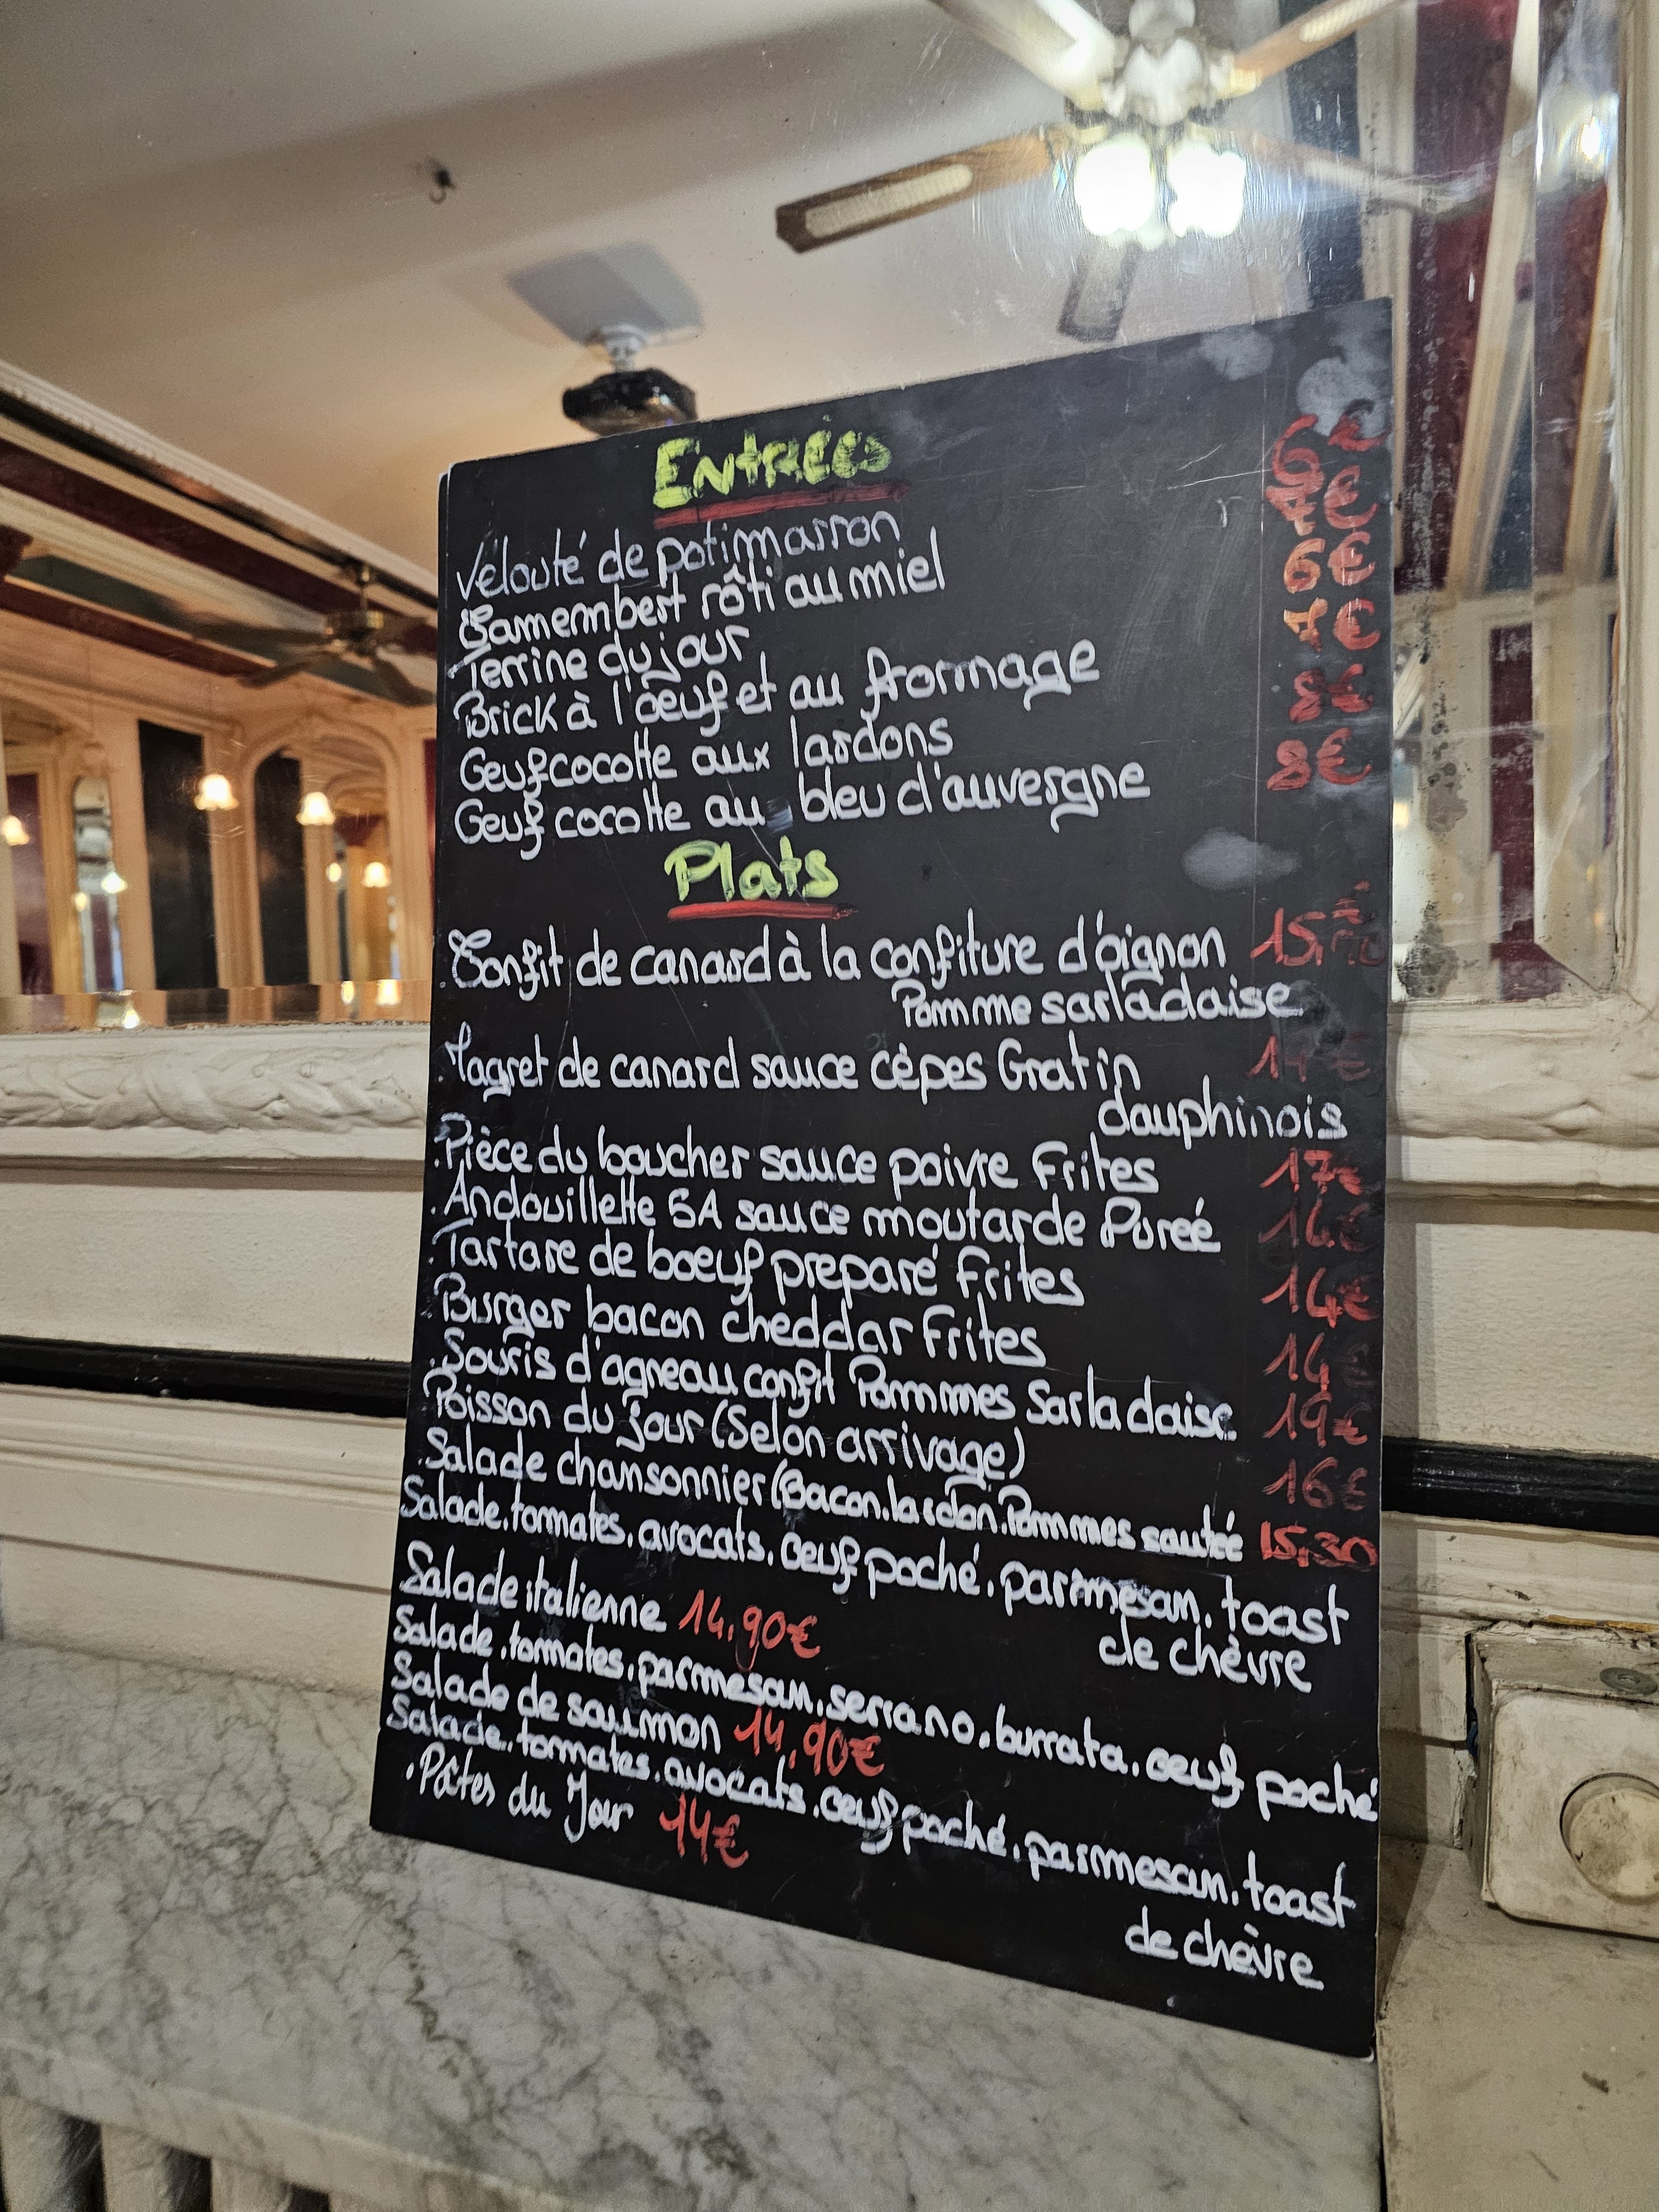 Entrées
Velouté de potimarron 6€
Camembert rôti au miel 7€
Terrine du jour 6€
Brick à l'oeuf et au fromage 7€
Oeuf cocotte aux lardons 8€
Oeuf cocotte au bleu d'auvergne 8€
Plats
. Confit de canard à la confiture d'oignon 15,
Pomme sarladaise
. Magret de canard sauce cèpes Gratin
dauphinois
. Pièce du boucher sauce poivre Frites 17€
. Andouillette 5A sauce moutarde Pureé 14€
. Tartare de boeuf preparé Frites 14€
. Burger bacon cheddar Frites 14€
. Souris d'agneau confit Pommes Sarladaise 19€
Poisson du jour (Selon arrivage) 16€
. Salade chansonnier (Bacon. lardon. Pommes sautée 15,30
Salade. tomates. avocats. oeuf poché. parmesan. toast
de chèvre
. Salade italienne 14,90€
Salade. tomates. parmesan. serrano. burrata. oeuf poché
Salade de saumon 14,90€
Salade. tomates. avocats. oeuf poché. parmesan. toast
de chèvre
. Pâtes du Jour 14€